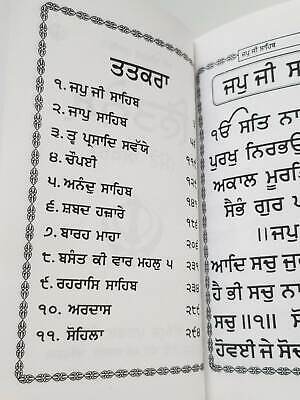 ਤਤਕਰਾ
੧. ਜਪੁ ਜੀ ਸਾਹਿਬ
੨. ਜਾਪੁ ਸਾਹਿਬ
੩. ਤ੍ਵ ਪ੍ਰਸਾਦਿ ਸਵੱਯੇ
੪. ਚੌਪਈ
੫. ਅਨੰਦੁ ਸਾਹਿਬ
੬. ਸ਼ਬਦ ਹਜ਼ਾਰੇ
੭. ਬਾਰਹ ਮਾਹਾ
੮. ਬਸੰਤ ਕੀ ਵਾਰ ਮਹਲੁ ੫
੯. ਰਹਰਾਸਿ ਸਾਹਿਬ
੧੦. ਅਰਦਾਸ
੧੧. ਸੋਹਿਲਾ ੨੯੪
ਜਪੁ ਜੀ ਸਾਹਿਬ
ਜਪੁ ਜੀ
ੴ ਸਤਿ
ਪੁਰਖੁ ਨਿਰਭਉ
ਅਕਾਲ ਮੂਰਤਿ
ਸੈਭੰ ਗੁਰ
॥ਜਪੁ
ਆਦਿ ਸਚੁ
ਹੈ ਭੀ ਸਚੁ
ਸਚੁ ॥੧॥
ਹੋਵਈ ਜੇ